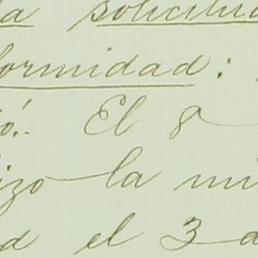 la solicitud
formidad:
ó. El 8
izo la mi
d el 3 d